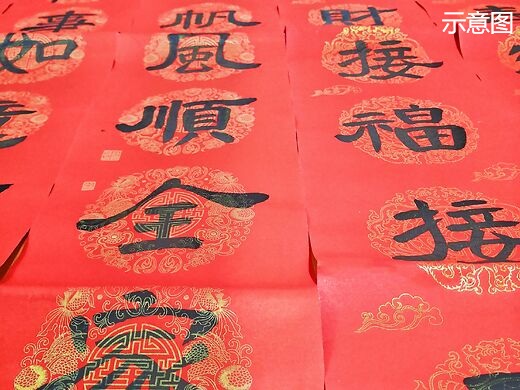 示意图
財接福接
帆風順全
如